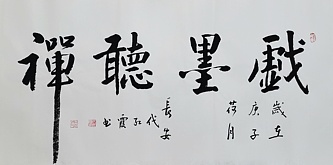 戲墨聽禪
歲在
庚子
荷月
長安
代红霞
书